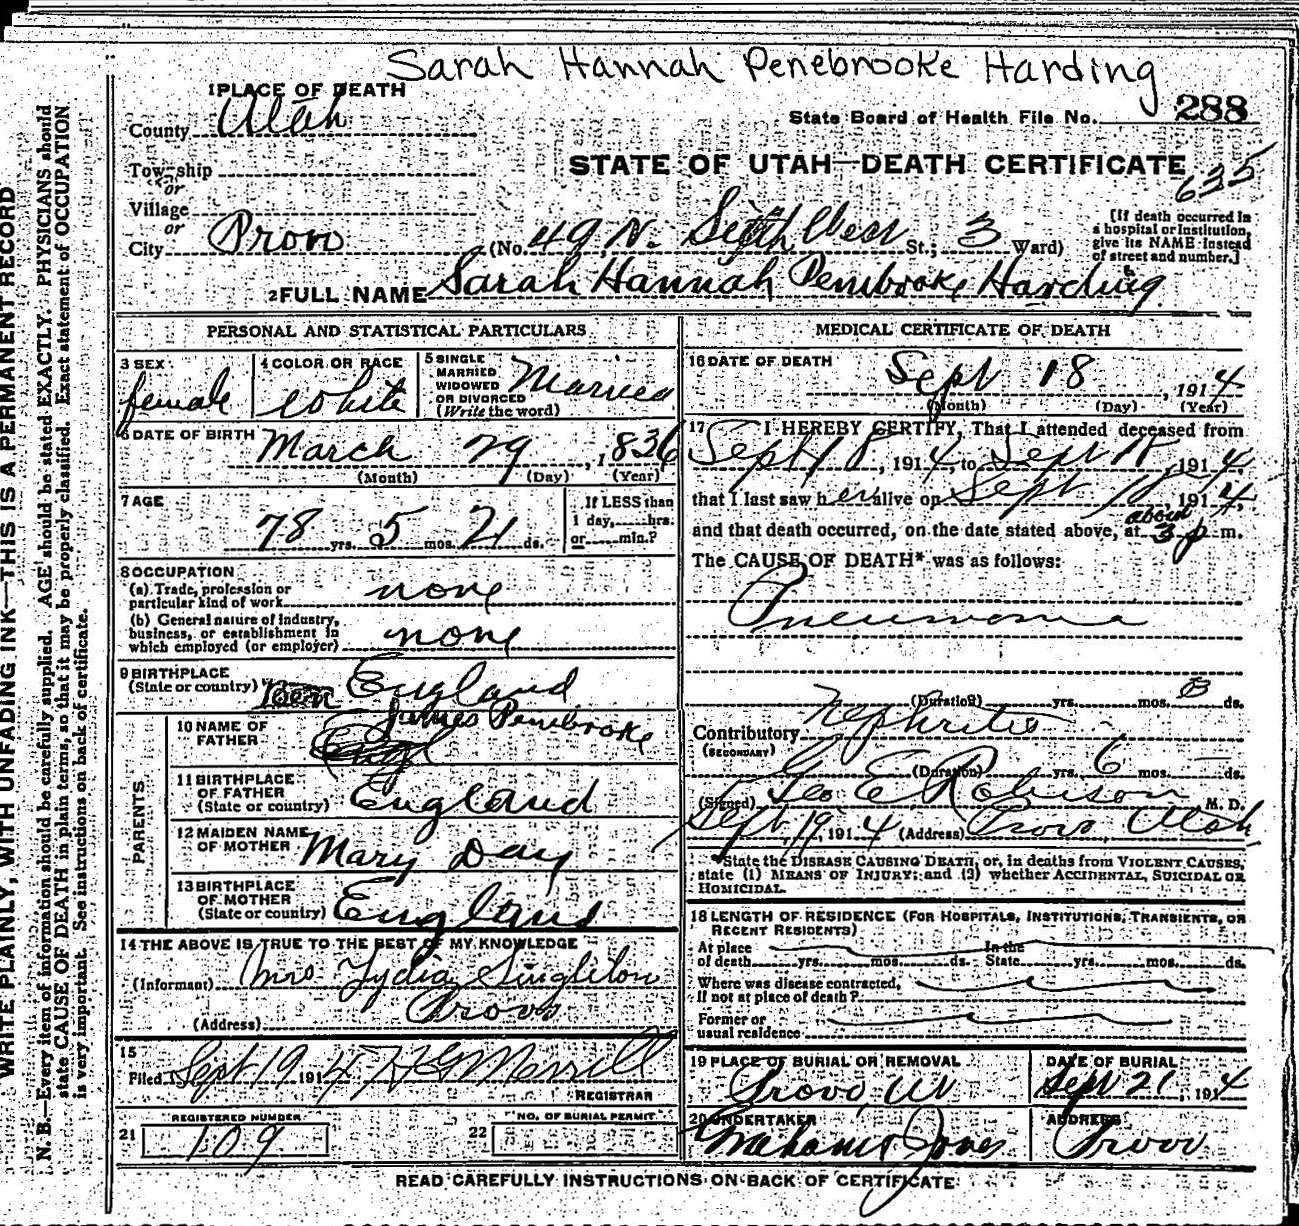 Sarah Hannah Penebrooke Harding
1 PLACE OF DEATH
County Utah
State Board of Health File No. 288
STATE OF UTAH—DEATH CERTIFICATE
635
Township
or
Village
or
City Provo (No. 49 N. Sixth West St.; 3 Ward)
[If death occurred in
a hospital or institution,
give its NAME instead
of street and number.]
2 FULL NAME Sarah Hannah Penebrooke Harding
PERSONAL AND STATISTICAL PARTICULARS
3 SEX
female
4 COLOR OR RACE
white
5 SINGLE
MARRIED
WIDOWED
OR DIVORCED
(Write the word)
Married
6 DATE OF BIRTH
March 29, 1836
(Month) (Day) (Year)
7 AGE
78 yrs. 5 mos. 21 ds.
If LESS than
1 day, hrs.
or min.?
8 OCCUPATION
(a) Trade, profession or
particular kind of work none
(b) General nature of industry,
business, or establishment in
which employed (or employer) none
9 BIRTHPLACE
(State or country) England
PARENTS
10 NAME OF
FATHER
James Penebroke
11 BIRTHPLACE
OF FATHER
(State or country) England
12 MAIDEN NAME
OF MOTHER Mary Day
13 BIRTHPLACE
OF MOTHER
(State or country) England
14 THE ABOVE IS TRUE TO THE BEST OF MY KNOWLEDGE
(Informant) Mrs. Lydia Singleton
(Address) Provo
15
Filed Sept 19 1914 Merrill
REGISTRAR
REGISTERED NUMBER
21 109
NO. OF BURIAL PERMIT
22
MEDICAL CERTIFICATE OF DEATH
16 DATE OF DEATH
Sept 18, 1914
(Month) (Day) (Year)
17 I HEREBY CERTIFY, That I attended deceased from
Sept 18, 1914, to Sept 18, 1914,
that I last saw her alive on Sept 18, 1914,
and that death occurred, on the date stated above, at about 3 p m.
The CAUSE OF DEATH* was as follows:
Pneumonia
(Duration) yrs. mos. 3 ds.
Contributory Nephritis
(SECONDARY)
(Duration) yrs. 6 mos. ds.
(Signed) Geo E Robison M. D.
Sept. 19, 1914 (Address) Provo Utah
*State the DISEASE CAUSING DEATH, or, in deaths from VIOLENT CAUSES,
state (1) MEANS OF INJURY; and (2) whether ACCIDENTAL, SUICIDAL OR
HOMICIDAL.
18 LENGTH OF RESIDENCE (FOR HOSPITALS, INSTITUTIONS, TRANSIENTS, OR
RECENT RESIDENTS)
At place
of death yrs. mos. ds.
In the
State yrs. mos. ds.
Where was disease contracted,
if not at place of death?
Former or
usual residence
19 PLACE OF BURIAL OR REMOVAL
Provo, Ut
DATE OF BURIAL
Sept 21, 1914
20 UNDERTAKER
Jones
ADDRESS
Provo
READ CAREFULLY INSTRUCTIONS ON BACK OF CERTIFICATE
WRITE PLAINLY, WITH UNFADING INK—THIS IS A PERMANENT RECORD
N. B.—Every item of information should be carefully supplied. AGE should be stated EXACTLY. PHYSICIANS should
state CAUSE OF DEATH in plain terms, so that it may be properly classified. Exact statement of OCCUPATION
is very important. See instructions on back of certificate.